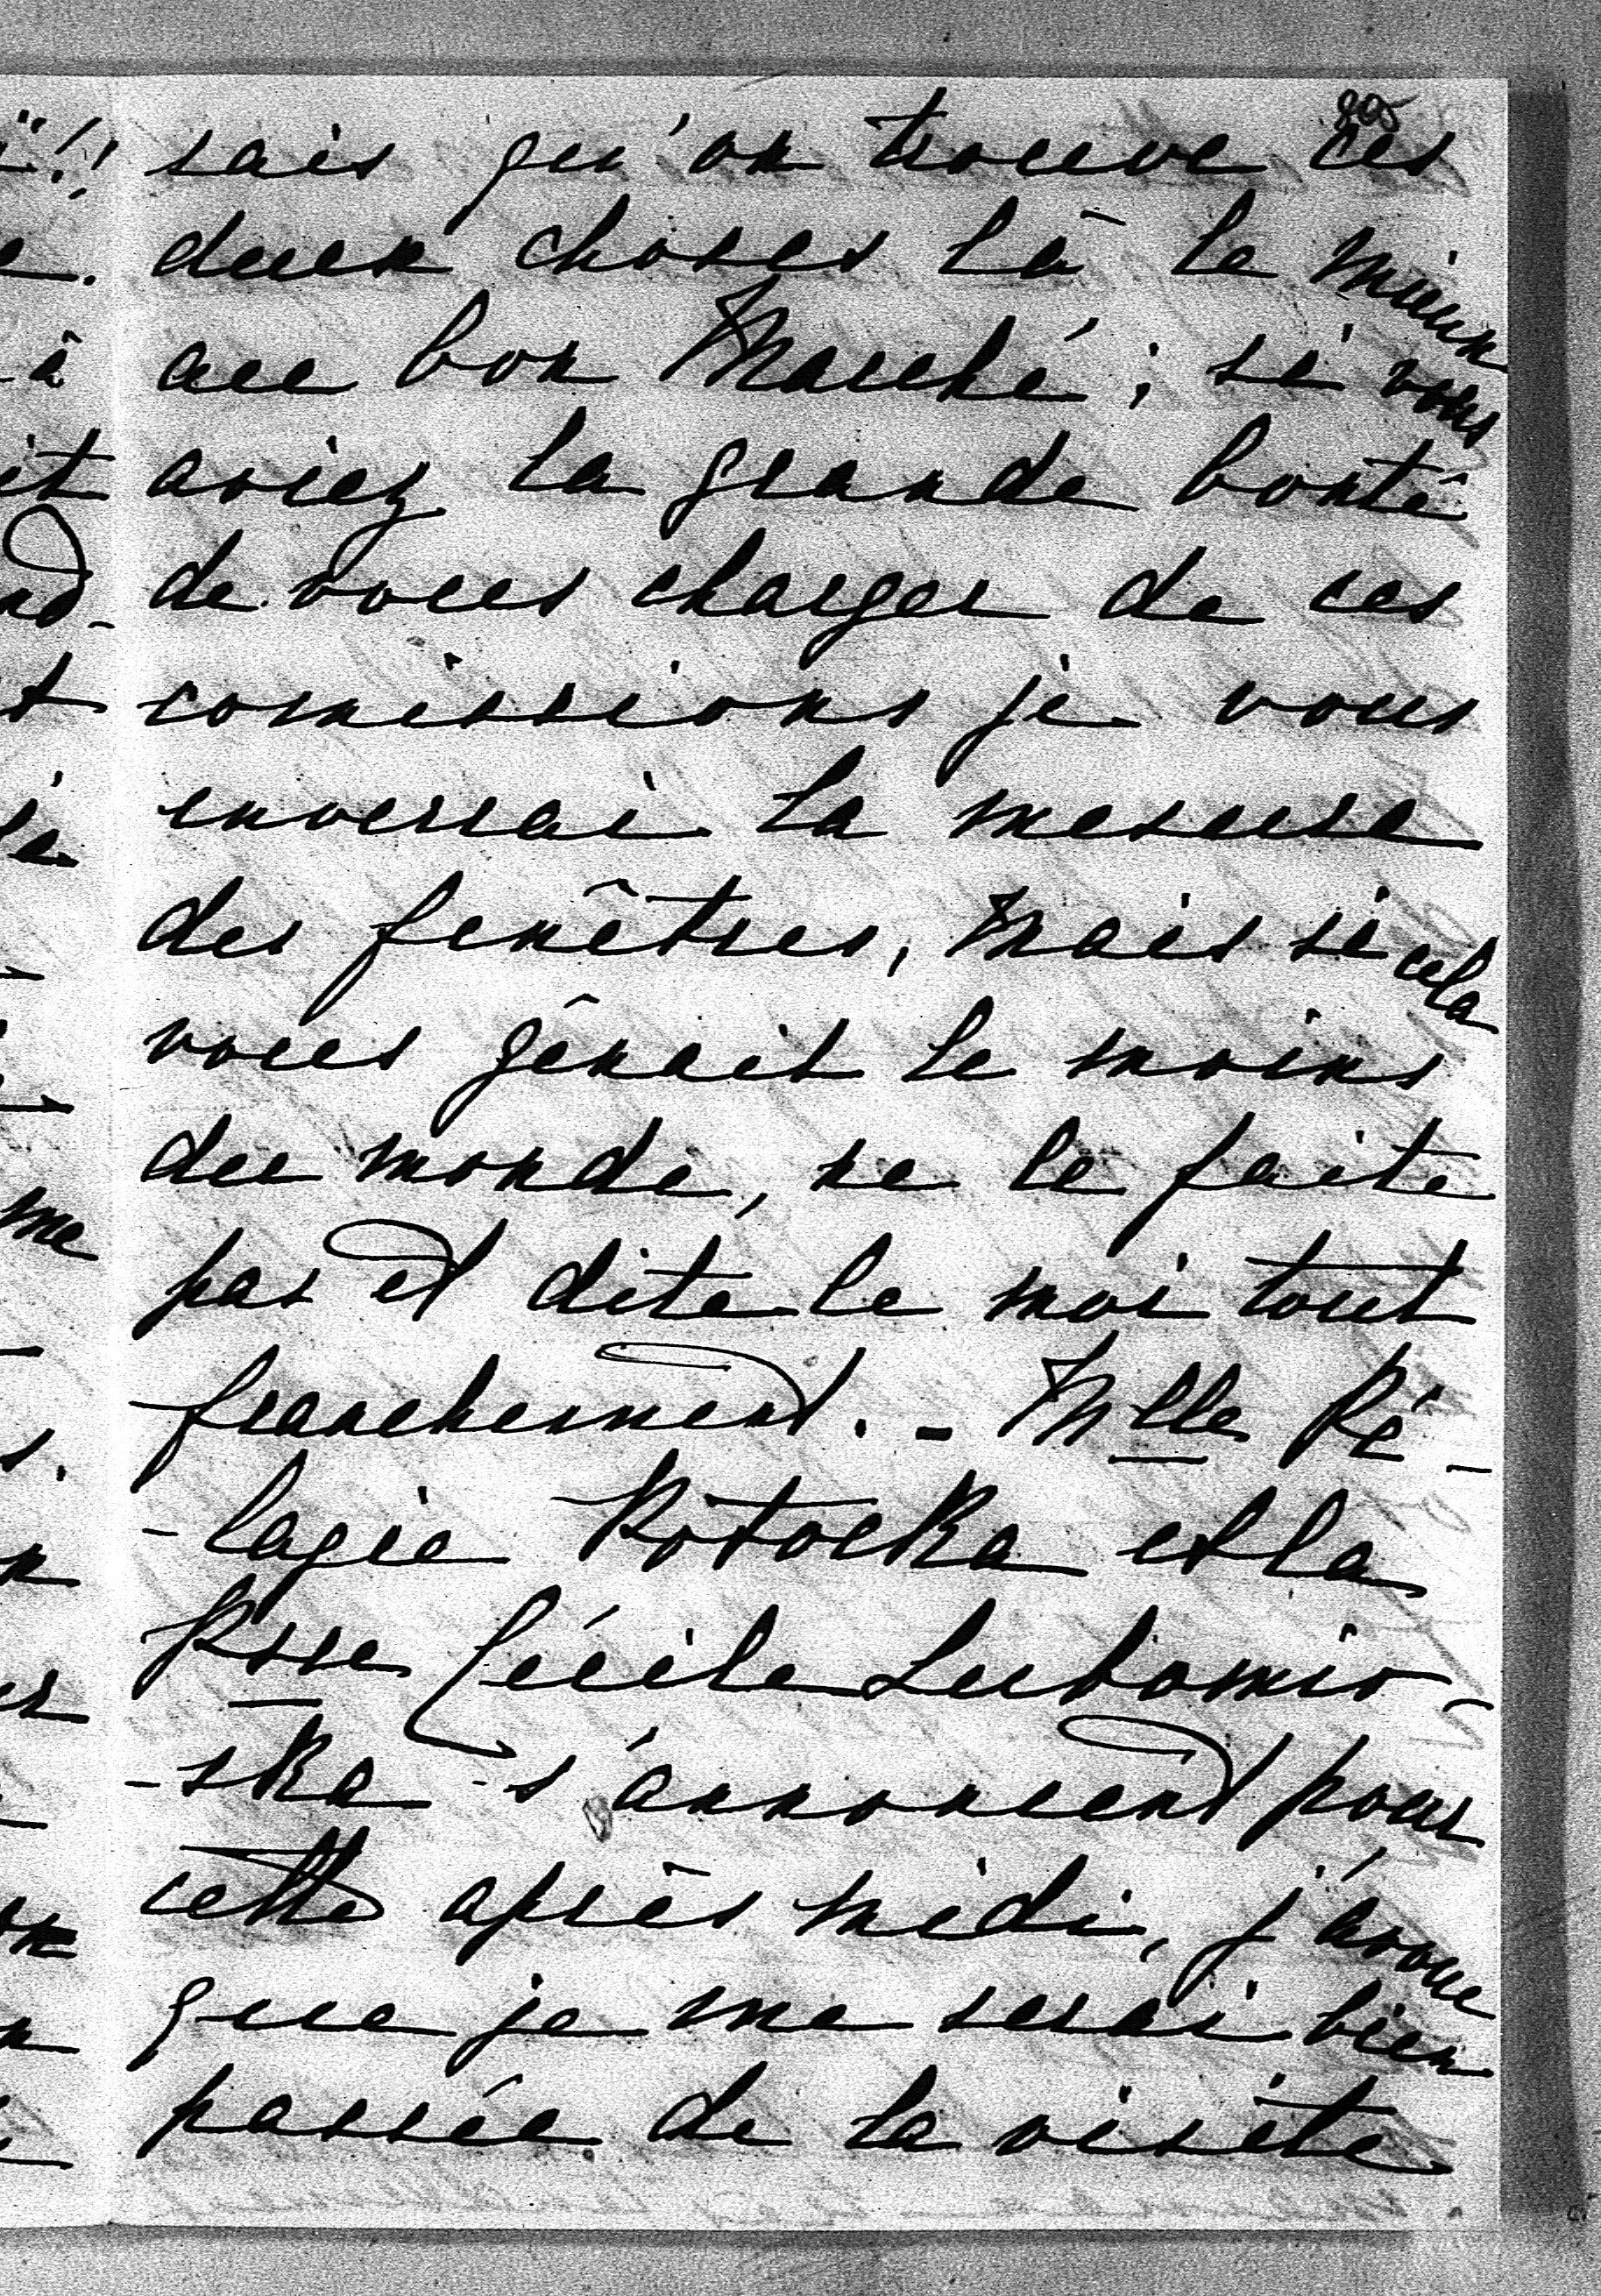 205
sais qu'on trouve ces
deux choses là le mieux
au bon Marché; si vous
aviez la grande bonté
de vous charger de ces
comissions je vous
enverrai la mesure
des fenêtres, Mais si cela
vous gênait le moins
du monde, ne le faite
pas et dite-le moi tout
franchement. - Mlle Pé-
-lagie Potocka et la
Psse Cécile Lubomir-
-ska s'annoncent pour
cette après midi, j'avoue
que je me serai bien
passée de la visite